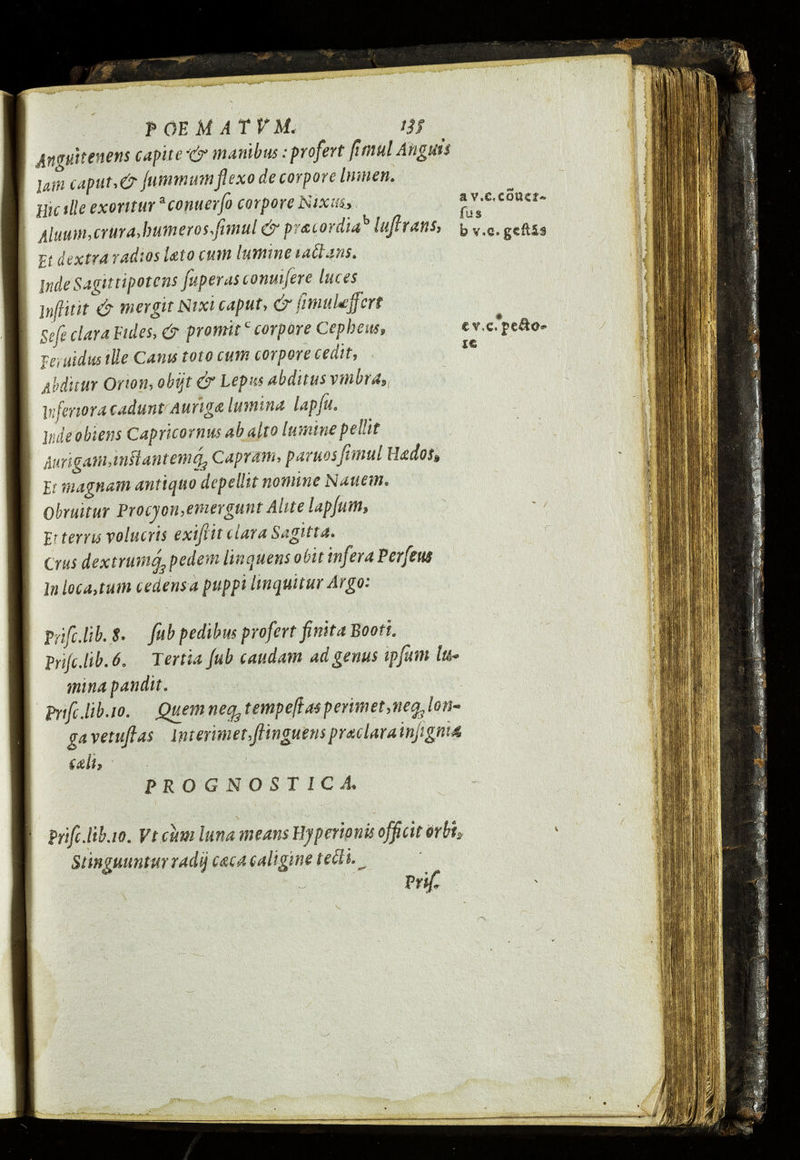 POEMATVM. 135
Anguitenens capite & manibus: profert ſimul Anguis
Iam caput, & ſummum flexo de corpore lumen.
Hic ille exoritur ᵃ conuerſo corpore Nixus,
a v.c. cõuerſus
Aluum, crura, humeros, ſimul & præcordia ᵇ luſtrans,
b v.c. geſtãs
Et dextra radios læto cum lumine iactans.
Inde Sagittipotens ſuperas conuiſere luces
Inſtitit & mergit Nixi caput, & ſimul effert
Seſe clara Fides, & promit ᶜ corpore Cepheus,
c v.c. pectore
Feruidus ille Canis toto cum corpore cedit,
Abditur Orion, obijt & Lepus abditus vmbra,
Inferiora cadunt Aurigæ lumina lapſu.
Inde obiens Capricornus ab alto lumine pellit
Aurigam, inſtantemq; Capram, paruos ſimul Hædos,
Et magnam antiquo depellit nomine Nauem.
Obruitur Procyon, emergunt Alite lapſum,
Et terris volucris exiſtit clara Sagitta.
Crus dextrumq; pedem linquens obit infera Perſeus
In loca, tum cedens a puppi linquitur Argo:
Priſc. lib. 8. ſub pedibus profert finita Booti.
Priſc. lib. 6. Tertia ſub caudam ad genus ipſum lu-
mina pandit.
Priſc. lib. 10. Quem neq; tempeſtas perimet, neq; lon-
ga vetuſtas Interimet, ſtinguens præclara inſignia
cæli,
PROGNOSTICA.
Priſc. lib. 10. Vt cùm luna means Hyperionis officit orbi,
Stinguuntur radij cæca caligine tecti.
Priſ.